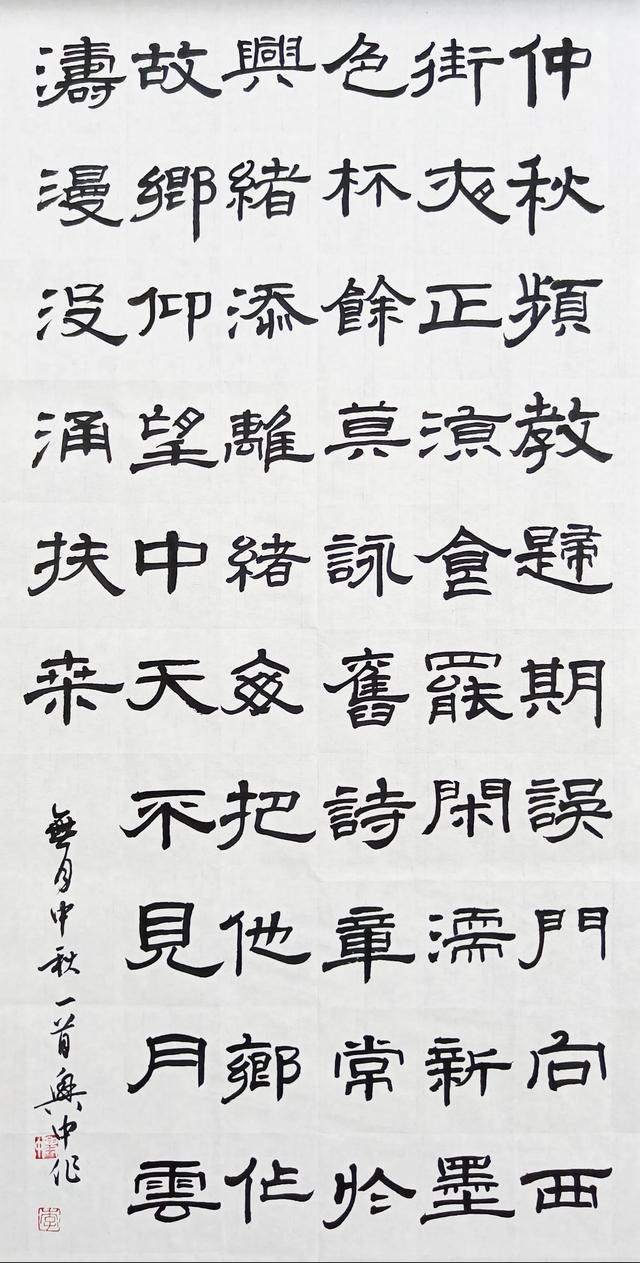 仲秋頻教歸期誤門向西
街夜正涼食罷閑濡新墨
色杯餘莫詠舊詩章常於
興緒添離緒每把他鄉作
故鄉仰望中天不見月雲
濤漫没涌扶桑
無月中秋一首興中作